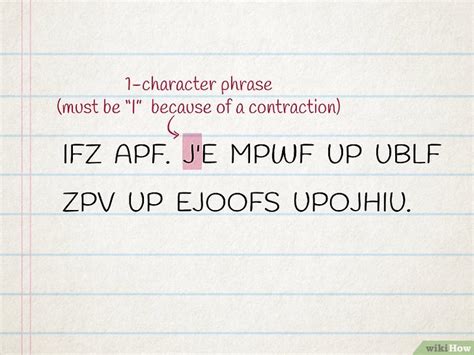 1-character phrase
(must be “I” because of a contraction)
IFZ APF. J'E MPWF UP UBLF
ZPV UP EJOOFS UPOJHIU.
wikiHow